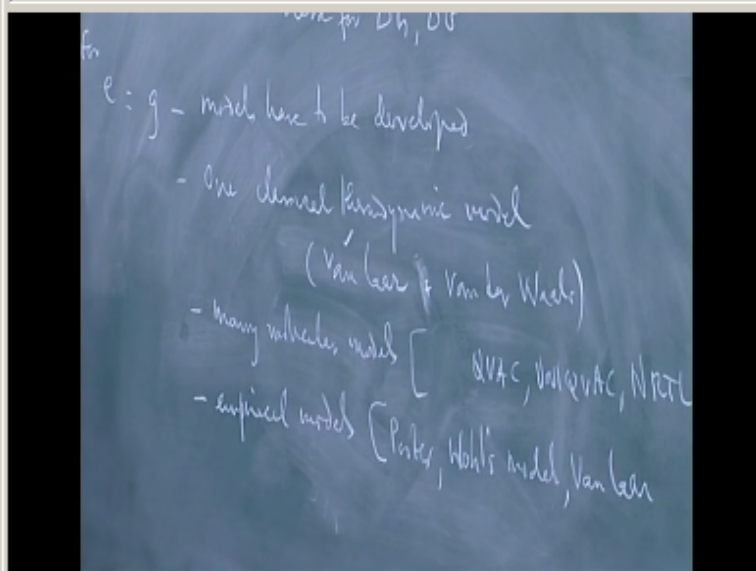 for Dh, DV
for
e : g - models have to be developed
- One classical thermodynamic model
(Van Laar & Van der Waals)
- many molecular models [ QUAC, UNIQUAC, NRTL
- empirical models [Porter, Wohl's model, Van Laar